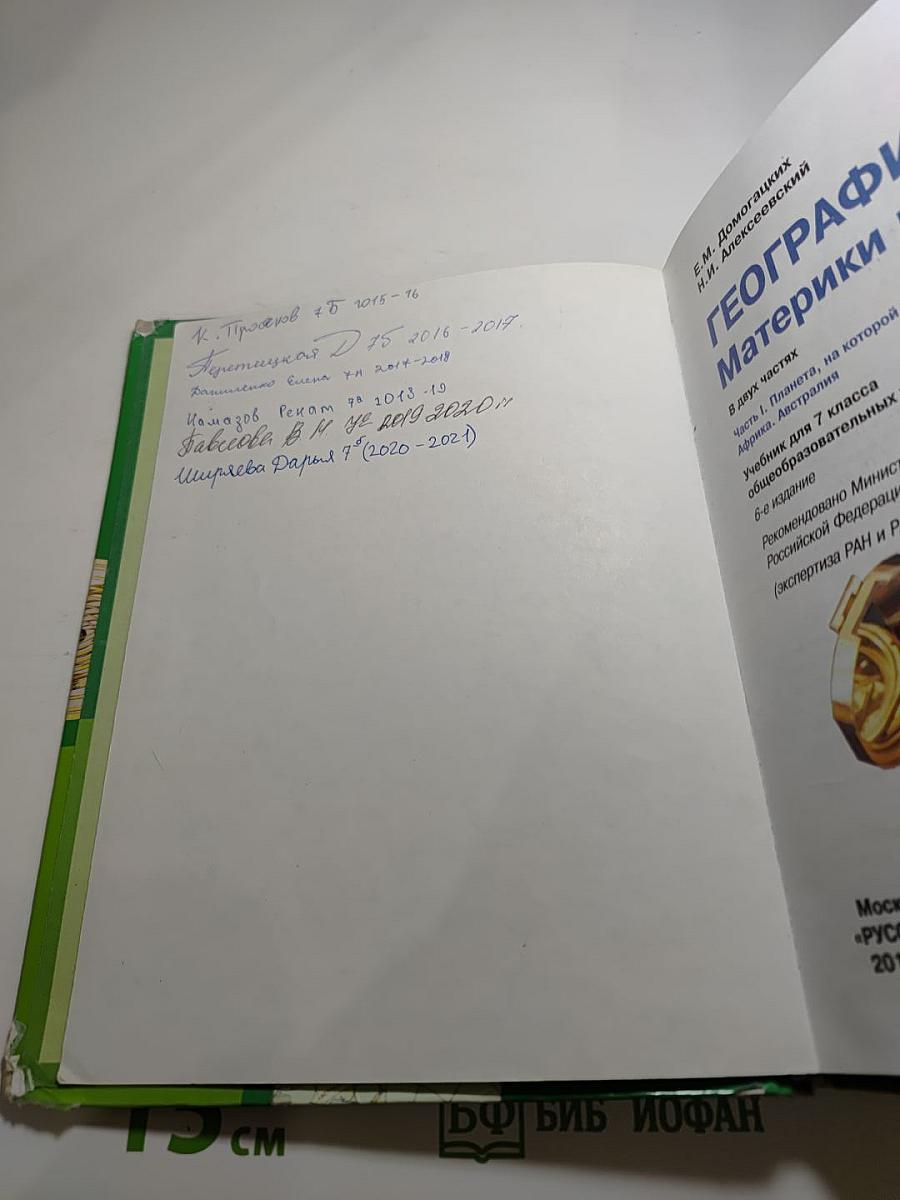 К. Просков 7Б 2015-16
Перетицкая Д 7Б 2016-2017.
Даниленко Елена 7А 2017-2018
Намазов Ренат 7а 2018-19
Павлова В М 7с 2019 2020 гг
Ширяева Дарья 7б (2020-2021)
Е.М. Домогацких
Н.И. Алексеевский
ГЕОГРАФИ
Материки
В двух частях
Часть I. Планета, на которой
Африка. Австралия
Учебник для 7 класса
общеобразовательных
6-е издание
Рекомендовано Минист
Российской Федераци
(экспертиза РАН и Р
Моск
«РУСС
201
15 см
БФ БИБ ИОФАН